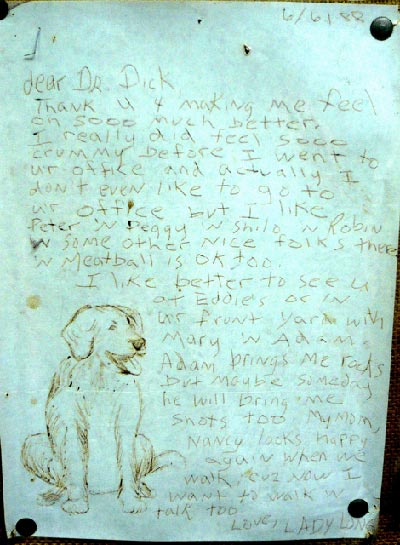 6/6/88
dear Dr. Dick,
Thank u 4 making me feel
oh sooo much better.
I really did feel sooo
crummy before I went to
ur office and actually I
don't even like to go to
ur office but I like
Peter 'N Peggy 'N Shilo 'N Robin
'N some other nice folks there
'N Meatball is OK too.
I like better to see u
at Eddie's or in
ur front yard with
Mary 'N Adam.
Adam brings me rocks
but maybe someday
he will bring me
too. My mom,
Nancy looks happy
again when we
walk, cuz now I
want to walk 'N
talk too.
Love, LADY LONG